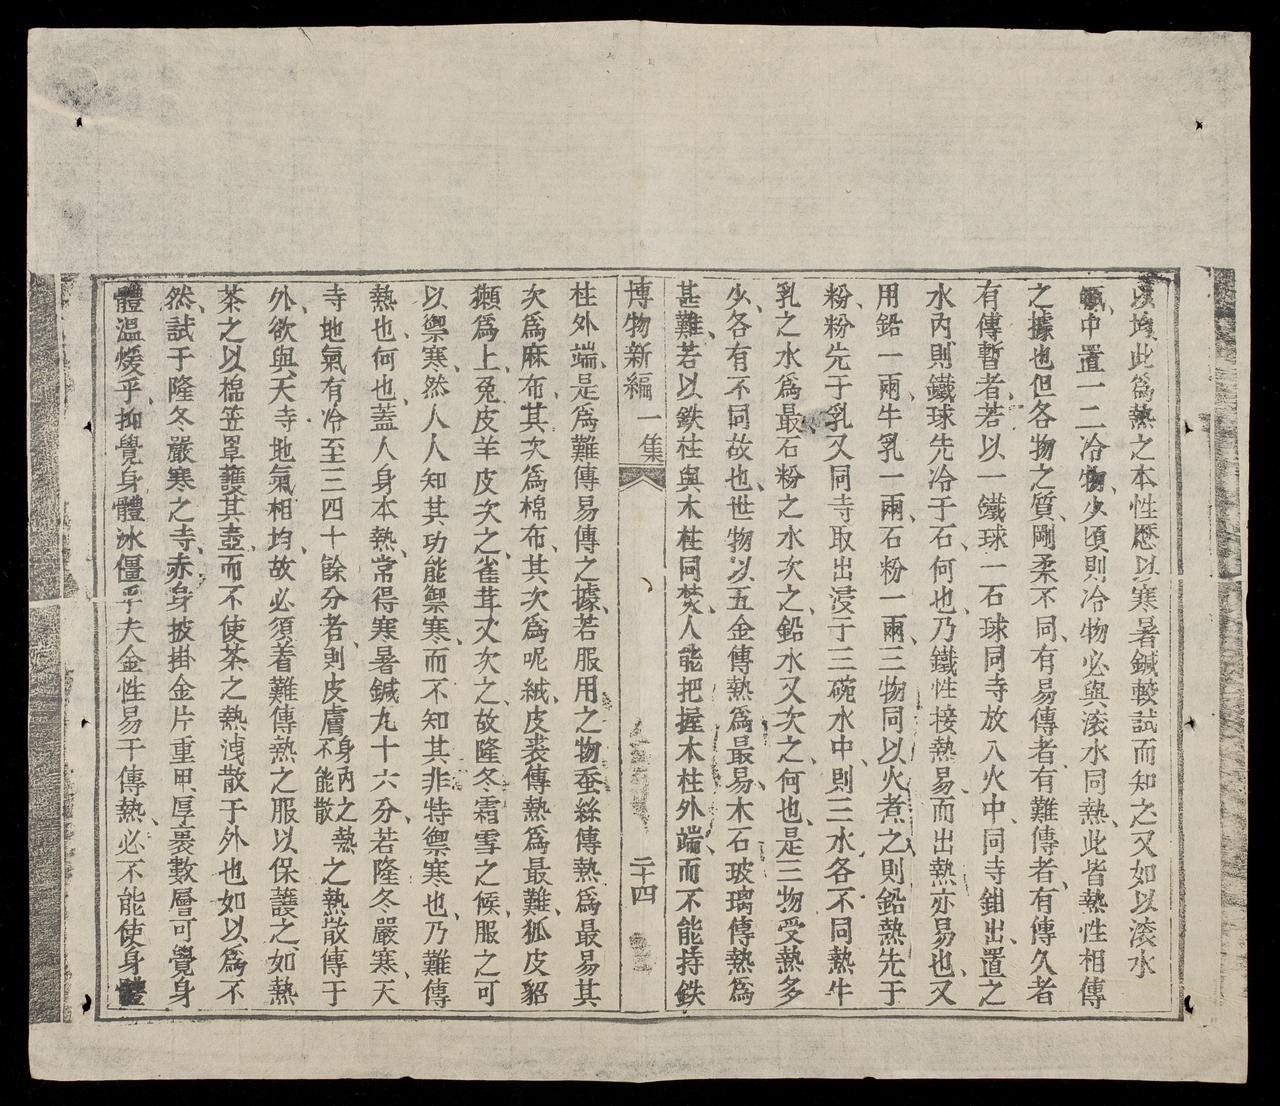 以均此為熱之本性應以寒暑鍼較試而知之又如以滚水
甌中置一二冷物少頃則冷物必與滚水同熱此皆熱性相傳
之據也但各物之質剛柔不同有易傳者有難傳者有傳久者
有傳暫者若以一鐵球一石球同寺放入火中同寺鉗出置之
水內則鐵球先冷于石何也乃鐵性接熱易而出熱亦易也又
用鉛一兩牛乳一兩石粉一兩三物同以火煮之則鉛熱先于
粉粉先于乳又同寺取出浸于三碗水中則三水各不同熱牛
乳之水為最石粉之水次之鉛水又次之何也是三物受熱多
少各有不同故也世物以五金傳熱為最易木石玻璃傳熱為
甚難若以鉄柱與木柱同焚人能把握木柱外端而不能持鉄
博物新編 一集 二十四
柱外端是為難傳易傳之據若服用之物蚕絲傳熱為最易其
次為麻布其次為棉布其次為呢絨皮裘傳熱為最難狐皮貂
獺為上兔皮羊皮次之雀茸又次之故隆冬霜雪之候服之可
以禦寒然人人知其功能禦寒而不知其非特禦寒也乃難傳
熱也何也蓋人身本熱常得寒暑鍼九十六分若隆冬嚴寒天
寺地氣有冷至三四十餘分者則皮膚身內之熱不能散之熱散傳于
外欲與天寺地氣相均故必須着難傳熱之服以保護之如熱
茶之以棉笠罩護其壺而不使茶之熱洩散于外也如以為不
然試于隆冬嚴寒之寺赤身披掛金片重甲厚裹數層可覺身
體溫煖乎抑覺身體冰僵乎夫金性易于傳熱必不能使身體